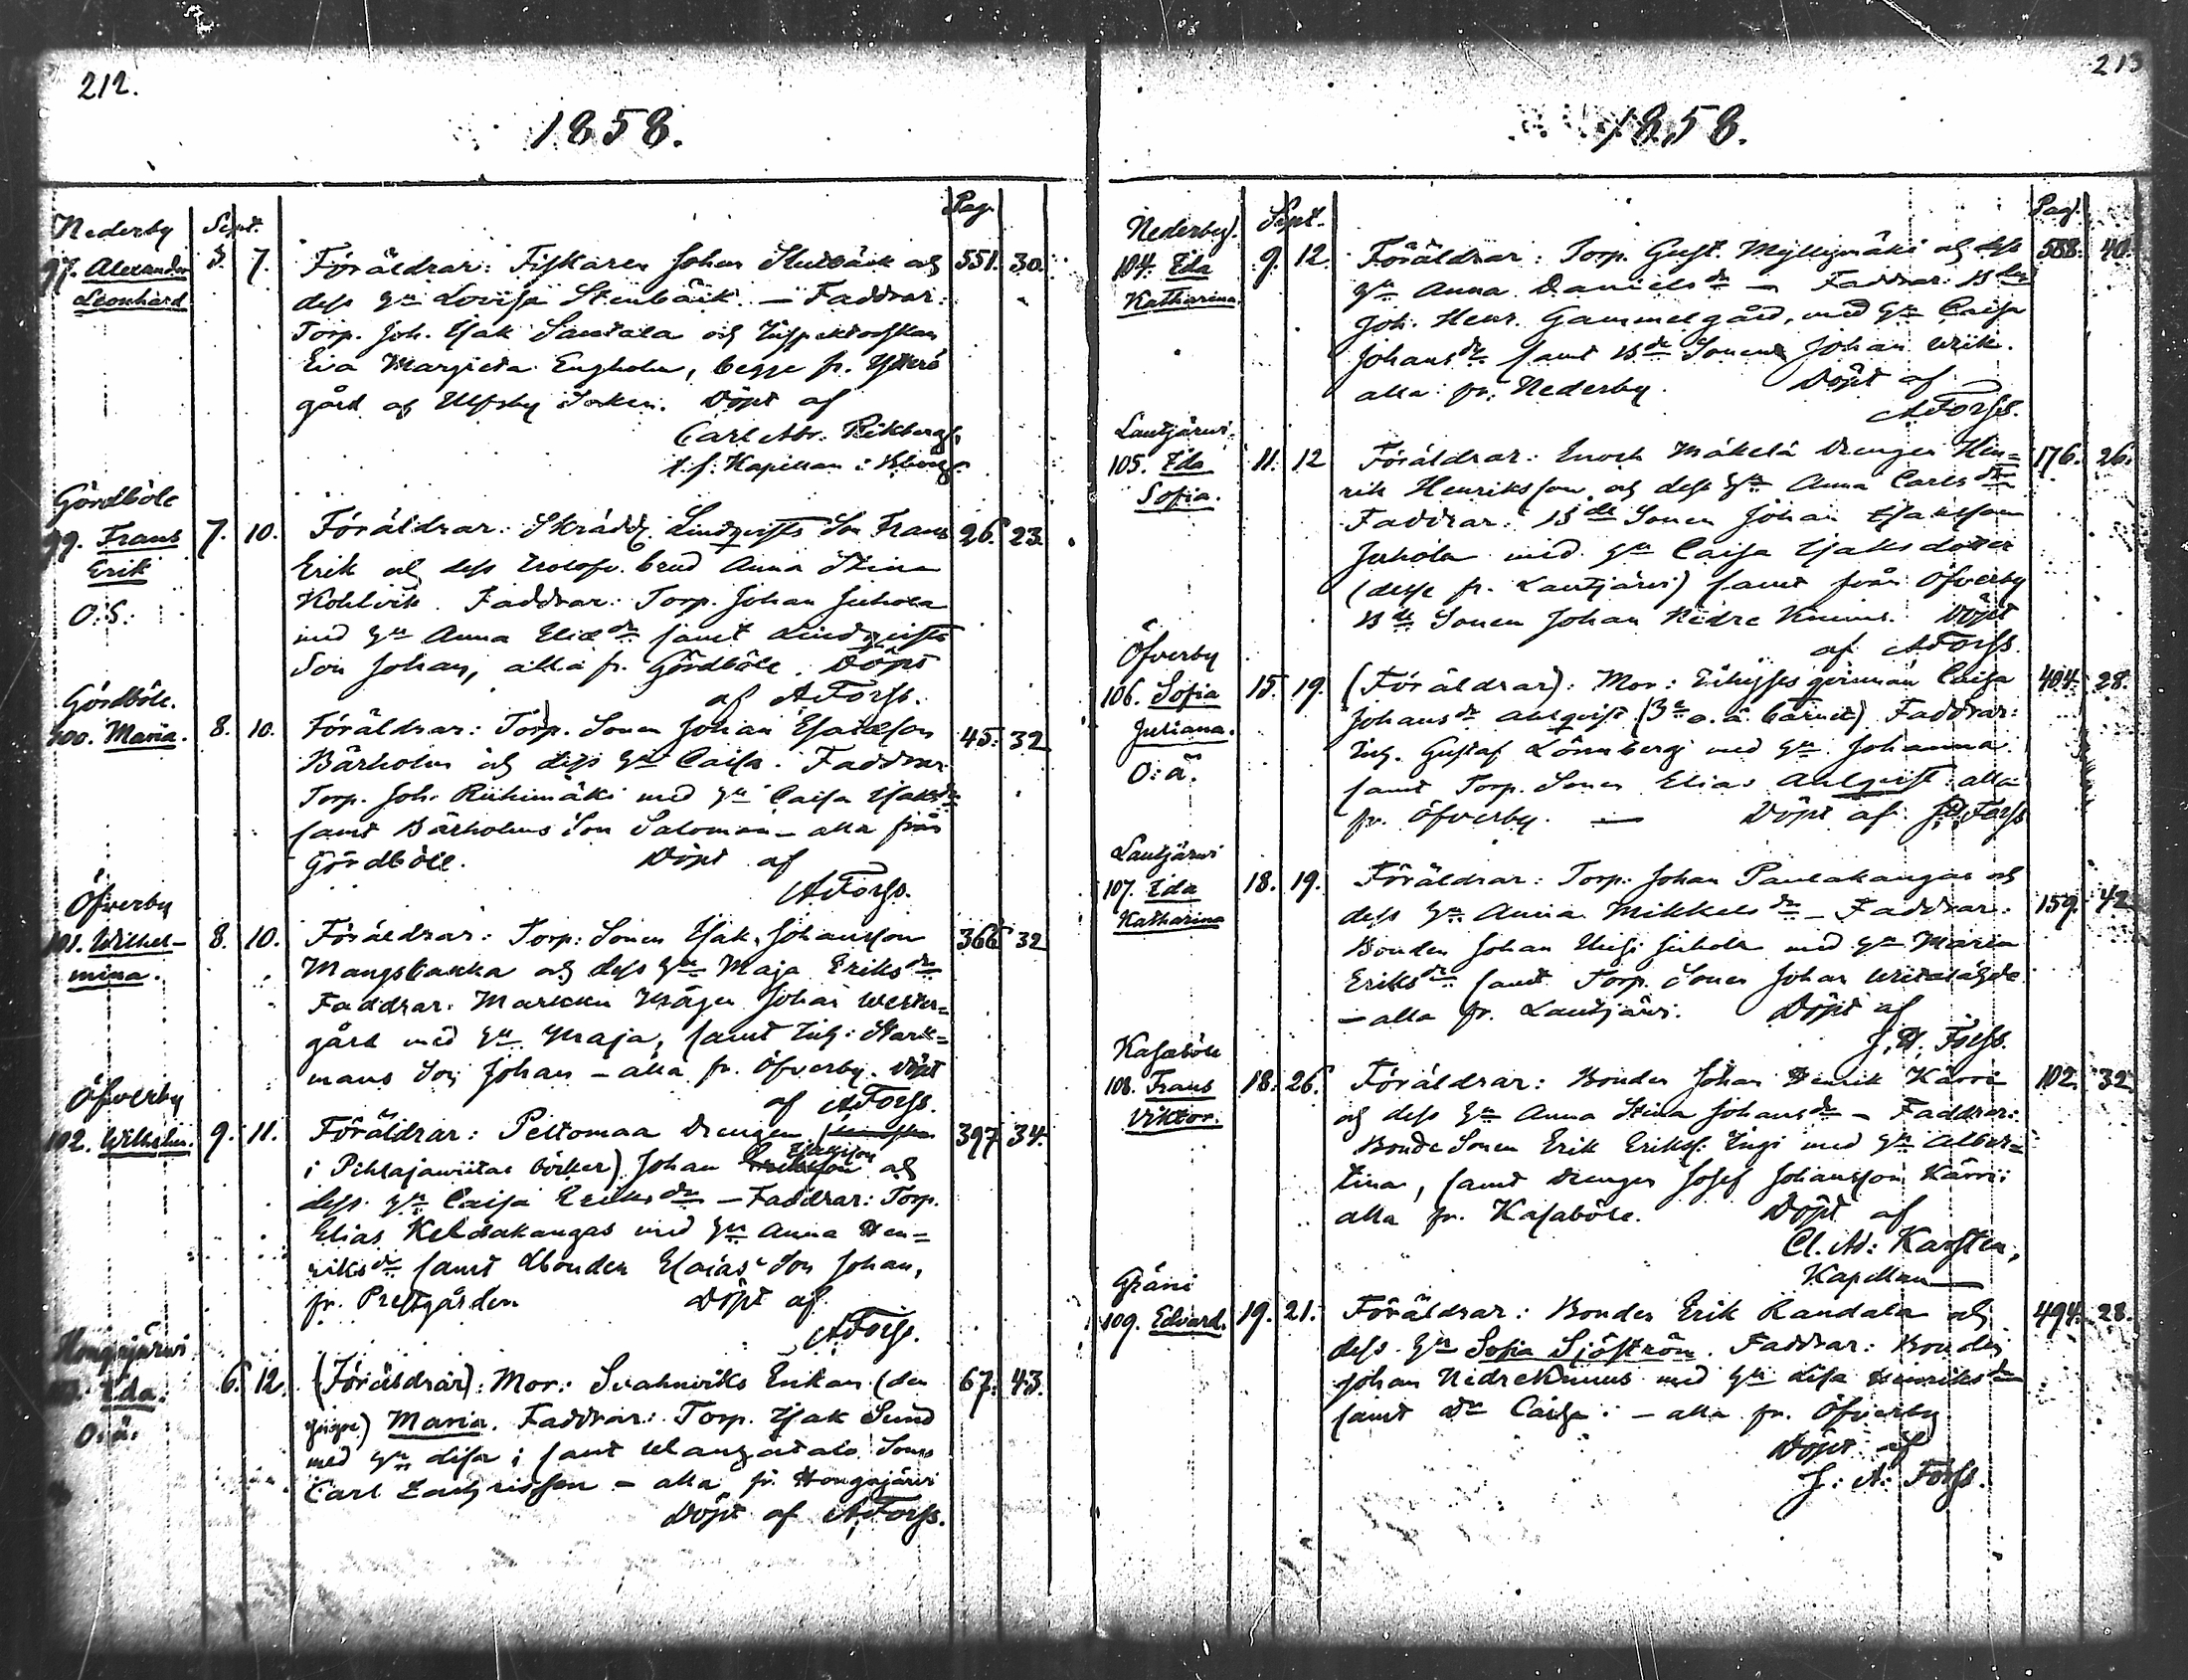 212.
1858.
Pag.
Nederby Sept.
97. Alexander 5. 7. Föräldrar: Fiskaren Johan Stenbäck och 551. 30.
Leonhard dess hu Lovisa Stenbäck. — Faddrar:
Torp. Joh. Isak Santala och Inspektorskan
Eva Margreta Engholm, begge fr. Ytterö
gård af Ulfsby Socken. Döpt af
Carl Abr. Rikberg,
t.f. Kapellan i
Gördböle
99. Frans 7. 10. Föräldrar: Skrädd. Lindqvists Son Frans 26. 23.
Erik Erik och dess trolofv. brud Anna Stina
O.S. Kohlvik. Faddrar: Torp. Johan Juhola
med hu Anna Eliædr samt Lindqvists
Son Johan, alla fr. Gördböle. Döpt
af A Forss.
Gördböle.
100. Maria. 8. 10. Föräldrar: Torp. Sonen Johan Esaiæson 45. 32
Bärholm och dess hu Caisa. Faddrar
Torp. Joh. Riihimäki med hu Caisa Isaksdr
samt Bärholms Son Salomon — alla från
Gördböle. Döpt af
A Forss.
Öfverby
101. Wilhel- 8. 10. Föräldrar: Torp: Sonen Isak Johansson 366 32
mina. Mangsbacka och dess hu Maja Eriksdr
Faddrar: Markku Johan Wester=
gård med hu Maja, samt Inh: Stark=
mans Son Johan — alla fr. Öfverby. Döpt
af A Forss.
Öfverby
102. Wilhelm. 9. 11. Föräldrar: Peltomaa Drengen 397 34.
Isaksson
i Pihlajawiitas böcker) Johan Eriksson och
dess hu Caisa Eriksdr — Faddrar: Torp.
Elias Keldakangas med hu Anna Hen=
riksdr samt Bonden Esaias Son Johan,
fr. Prestgården Döpt af
A Forss.
Hongajärwi
Ida. 6. 12. (Föräldrar): Mor: Svahnviks Enkan (den 67. 43.
O.ä. yngre) Maria. Faddrar: Torp. Isak Sund
med hu Lisa; samt Ulangatalo Sonen
Carl Zachrisson — alla fr. Hongajärwi
Döpt af A Forss.
213
1858.
Pag.
Nederby. Sept.
104. Ida 9. 12. Föräldrar: Torp. Gust. Myllymäki och dess 558. 40.
Katharina. hu Anna Danielsdr — Faddrar: Bden
Joh. Henr. Gammelgård, med hu Caisa
Johansdr samt Bde Sonen Johan Wrik.
alla fr. Nederby. Döpt af
A Forss.
Lautjärwi.
105. Ida 11. 12 Föräldrar: Enoch Mäkelä Drengen Hen= 176. 26.
Sofia. rik Henriksson och dess hu Anna Carlsdr
Faddrar: Bde Sonen Johan Isaksson
Juhola med hu Caisa Isaksdotter
(desse fr. Lautjärwi) samt från Öfverby
Bde Sonen Johan Nedre Knuus. Döpt
af A Forss.
Öfverby
106. Sofia 15. 19. (Föräldrar): Mor: Inhyses qvinnan Caisa 404. 28.
Juliana. Johansdr Ahlqvist (3e o.ä. barnet) Faddrar:
O:ä. Inh. Gustaf Lönnberg med hu Johanna
samt Torp. Sonen Elias Ahlqvist: alla
fr. Öfverby. — Döpt af J.A. Forss
Lautjärwi
107. Ida 18. 19. Föräldrar: Torp. Johan Paulakangas och
Katharina dess hu Anna Mikkelsdr — Faddrar: 159. 42
Bonden Johan Juhola med hu Maria
Eriksdr samt Torp. Sonen Johan
— alla fr. Lautjärwi. Döpt af
J. A. Forss.
Kasaböle
108. Frans 18. 26. Föräldrar: Bonden Johan Henrik Kärri 102. 32
Viktor. och dess hu Anna Stina Johansdr — Faddrar:
Bonde Sonen Erik Eriks. Yngi med hu Alber=
tina, samt Drengen Josef Johansson Kärri:
alla fr. Kasaböle. Döpt af
Cl. Ad: Karsten,
Kapellan
Gräni
109. Edvard. 19. 21. Föräldrar: Bonden Erik Randala och 494. 28.
dess hu Sofia Sjöström. Faddrar: Bonden
Johan Nedre Knuus med hu Lisa Henriksdr
samt Dr Caisa: — alla fr. Öfverby
Döpt af
J: A: Forss.